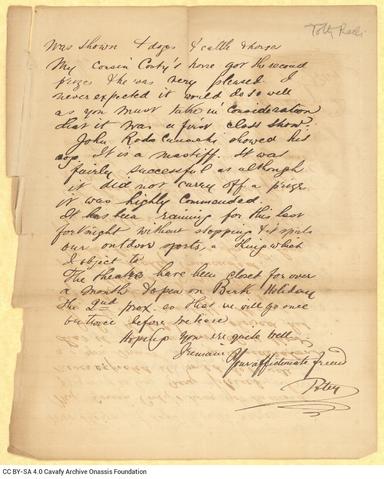 Toto Ralli
was shown & dogs & cattle & horses
My cousin Costy's horse got the second
prize & he was very pleased I
never expected it would do so well
as you must take in consideration
that it was a first class show.
John Rodocanachi showed his
dog. It is a mastiff. It was
fairly successful as although
it did not carry off a prize
it was highly commended.
It has been raining for this last
fortnight without stopping & it spoils
our outdoor sports, a thing which
I object to.
The theatres have been closed for over
a month & open on Bank Holiday
the 2nd prox. so that we will go once
or twice before we leave
Hoping you are quite well
I remain Your affectionate friend
CC BY-SA 4.0 Cavafy Archive Onassis Foundation